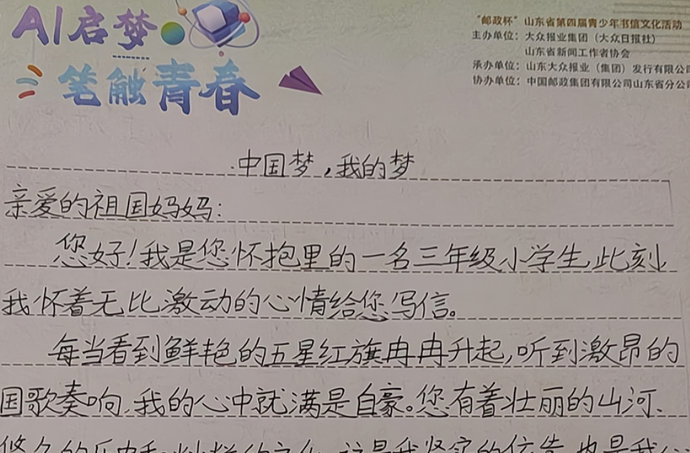 AI启梦
笔触青春
“邮政杯”山东省第四届青少年书信文化活动
主办单位：大众报业集团（大众日报社）
山东省新闻工作者协会
承办单位：山东大众报业（集团）发行有限公司
协办单位：中国邮政集团有限公司山东省分公司
中国梦，我的梦
亲爱的祖国妈妈：
您好！我是您怀抱里的一名三年级小学生，此刻
我怀着无比激动的心情给您写信。
每当看到鲜艳的五星红旗冉冉升起，听到激昂的
国歌奏响，我的心中就满是自豪。您有着壮丽的山河、